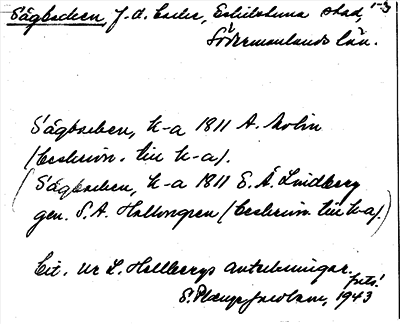 Sågbacken, f.d. backe, Eskilstuna stad, 1-3
Södermanlands län.
Sågbacken, k-a 1811 A. Molin
(beskrivn. till k-a).
(Sågbacken, k-a 1811 E. Å. Lindberg
gen. S. A. Hallongren (beskrivn. till k-a).)
Cit. ur L. Hellbergs anteckningar.
forts!
S. 1943